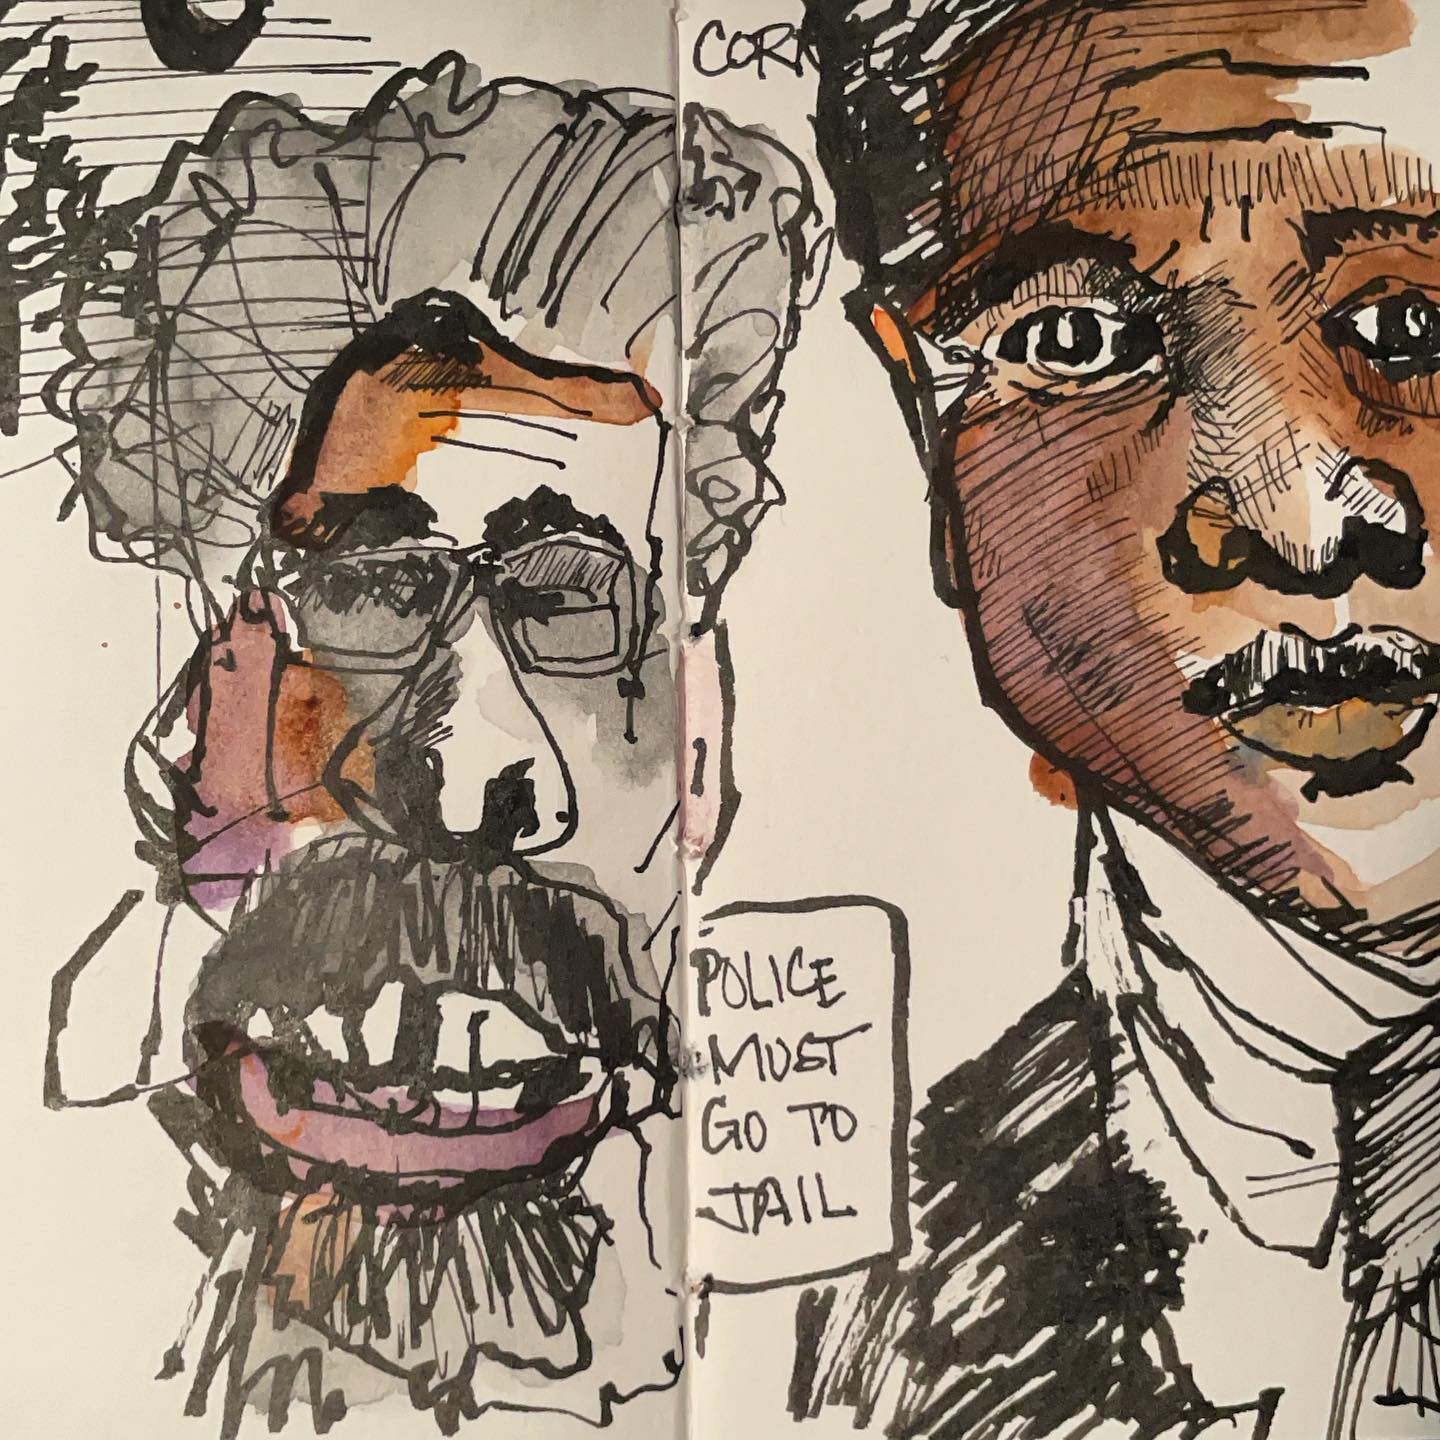 CORNEL
POLICE
MUST
GO TO
JAIL